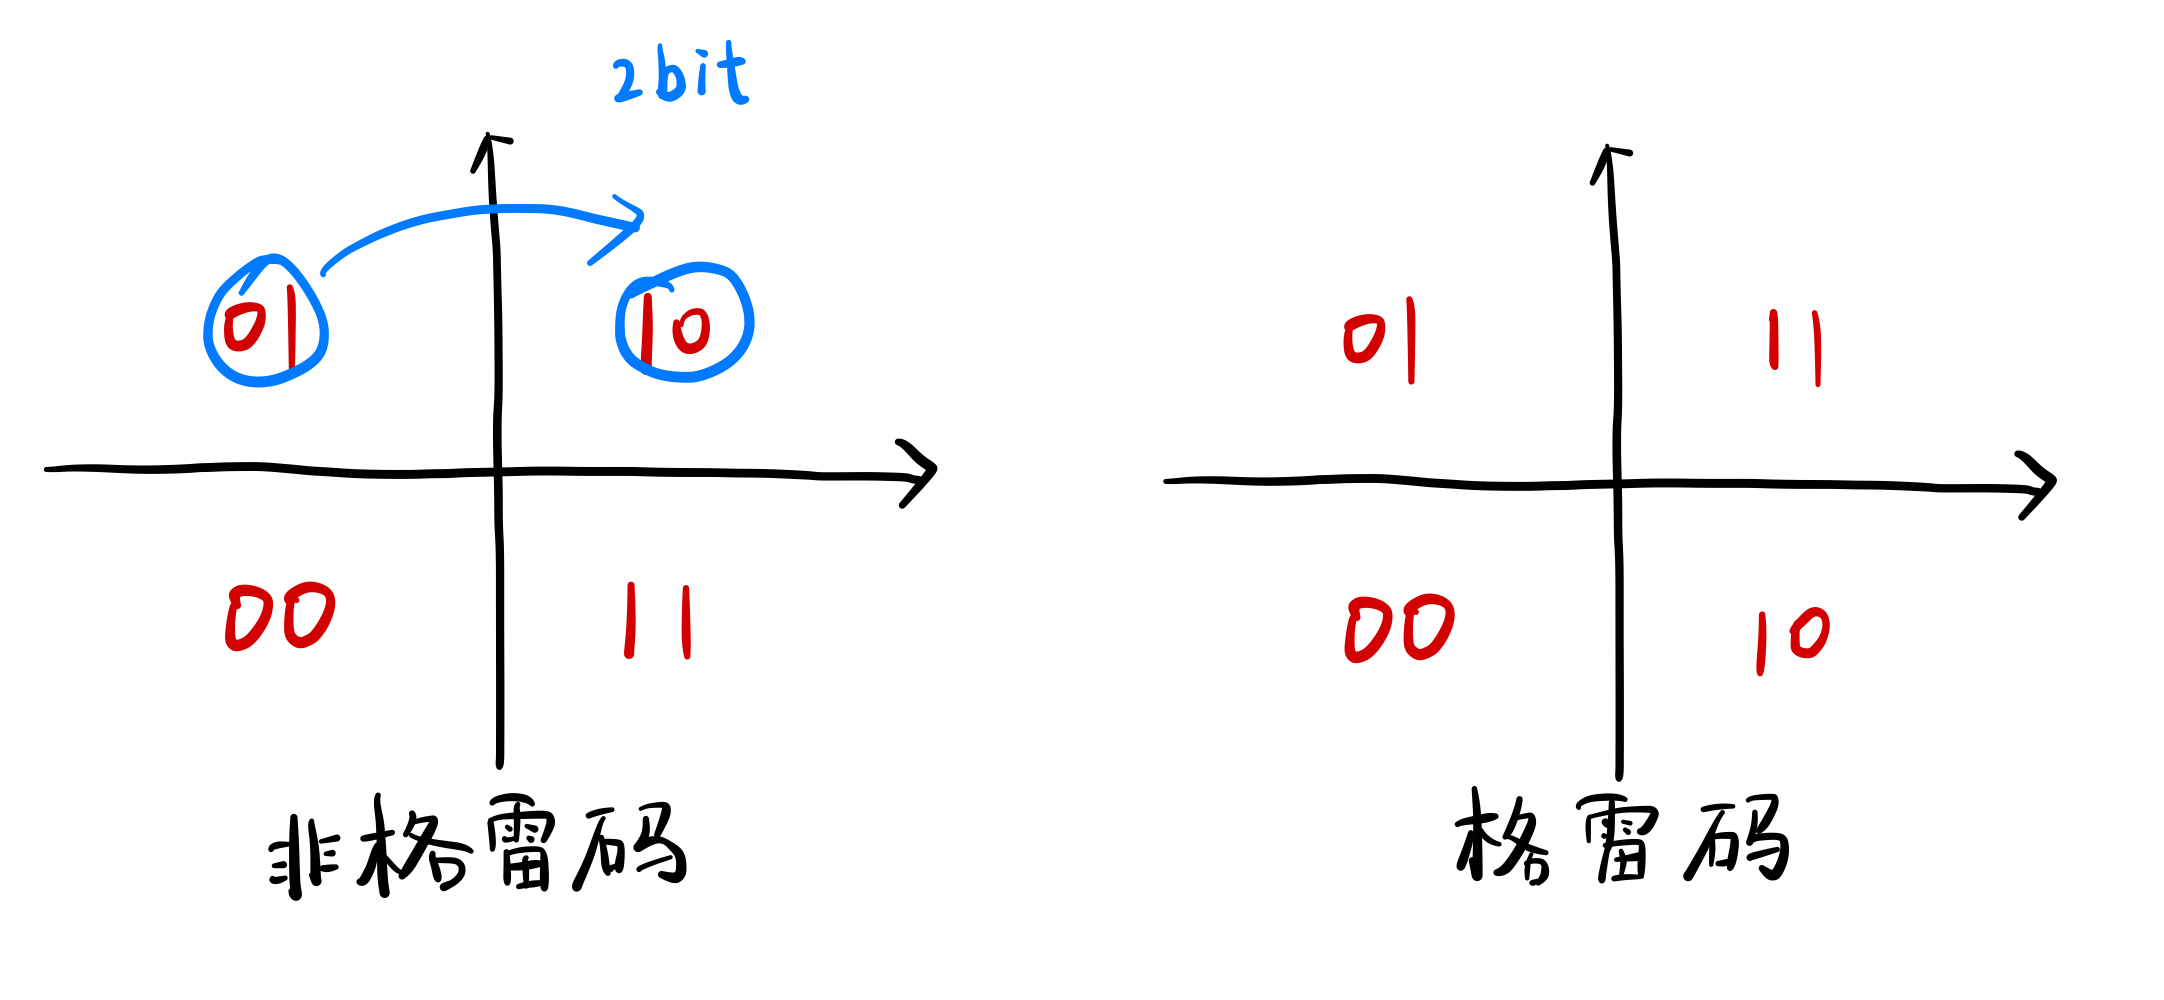 2bit
01 10
00 11
非格雷码
01 11
00 10
格雷码